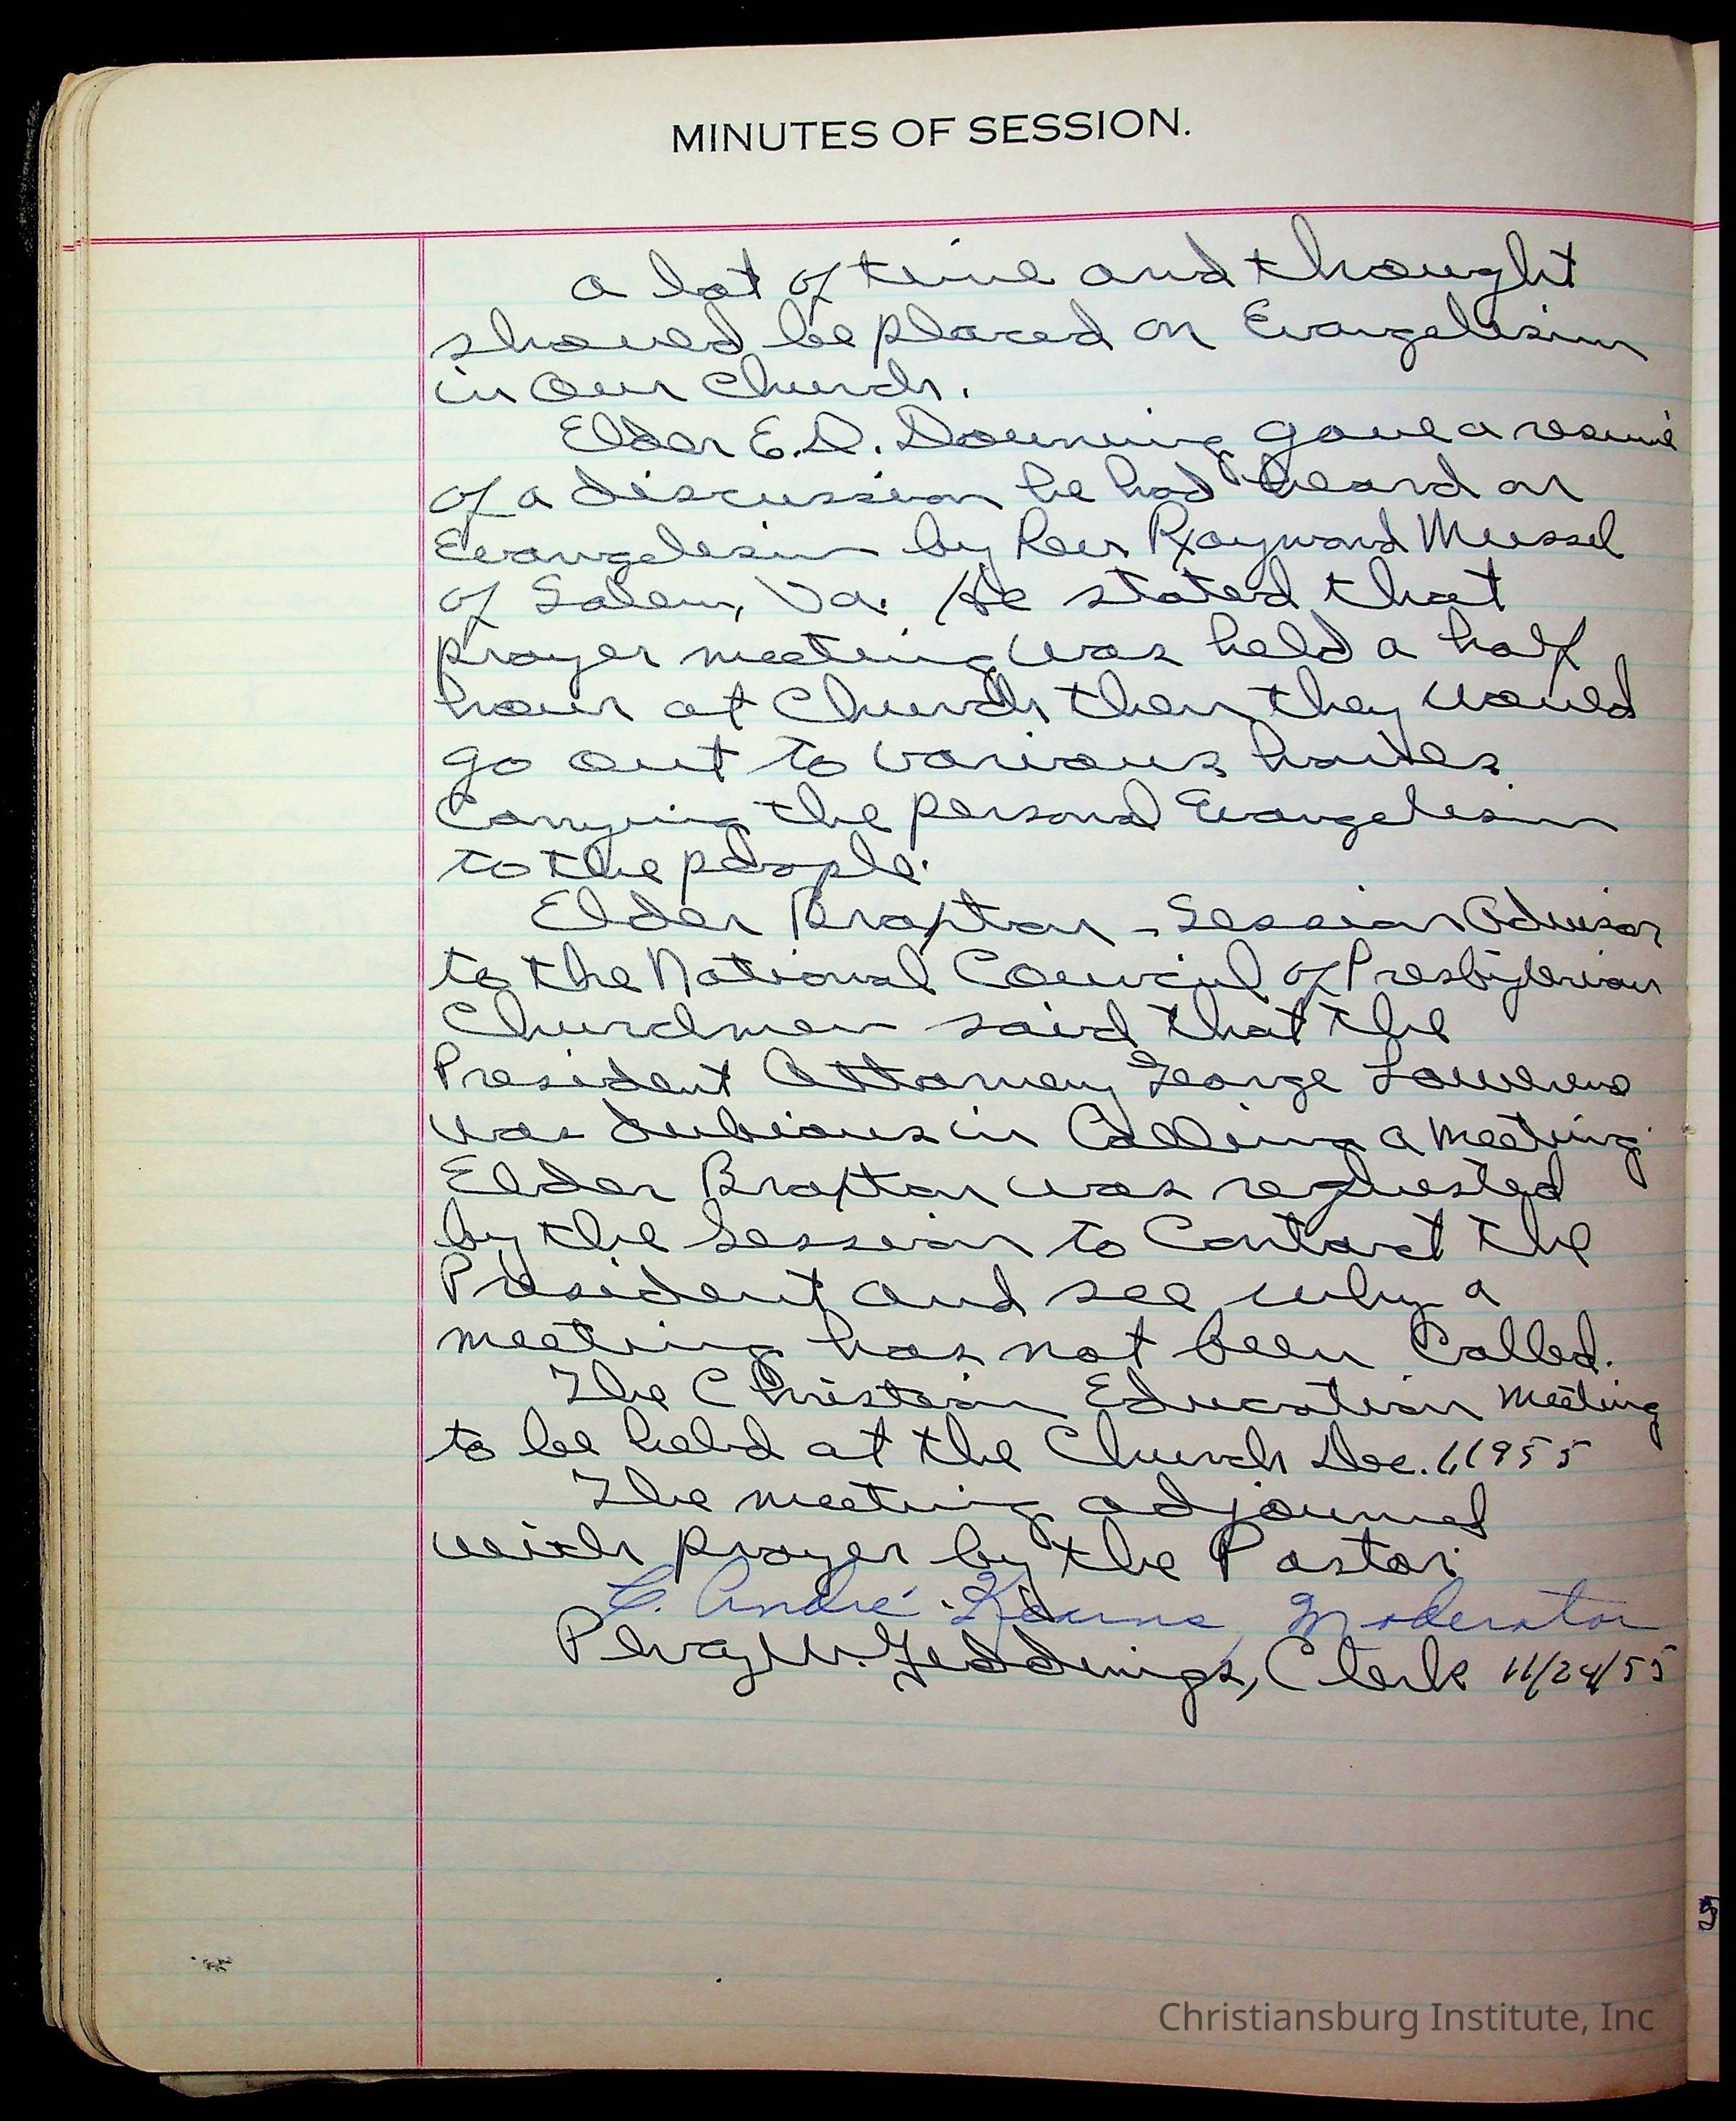 MINUTES OF SESSION.
a lot of time and thought
should be placed on Evangelism
in our Church.
Elder E.D. Downing gave a resumé
of a discussion he had heard on
Evangelism by Rev Raymond Mussel
of Salem, Va. He stated that
prayer meeting was held a half
hour at Church then they would
go out to various homes
Carrying the personal Evangelism
to the people.
Elder Braxton - Session Advisor
to the National Council of Presbyterian
Churchmen said that the
President Attorney George
was dubious in Calling a meeting
Elder Braxton was requested
by the Session to Contact the
President and see why a
meeting has not been Called.
The Christian Education meeting
to be held at the Church Dec. 1, 1955
The meeting adjourned
with prayer by the Pastor
C. André Kearns, Moderator
W. Geddings, Clerk 11/24/55
Christiansburg Institute, Inc